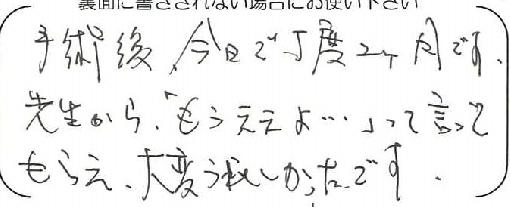 裏面に書ききれない場合にお使い下さい
手術後、今日で丁度2ヶ月です、
先生から、「もうええよ…」って言って
もらえ、大変う礼しかったです。